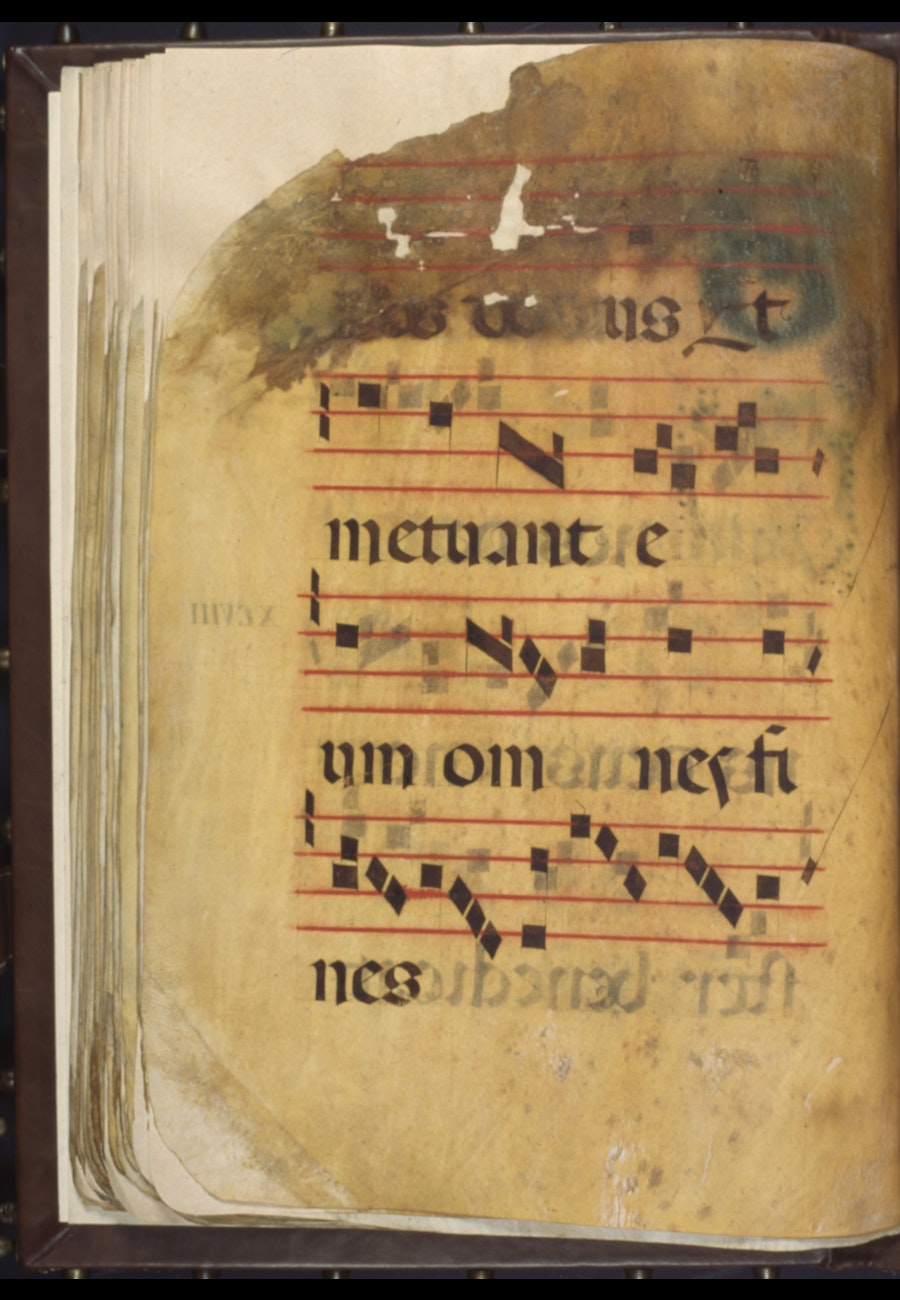 nos de us Et
metuant e
um om nes fi
nes